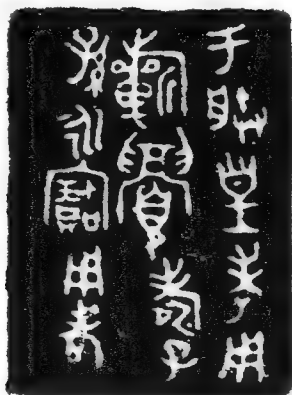 于朕皇考用
旂眉壽子
孫永寶用